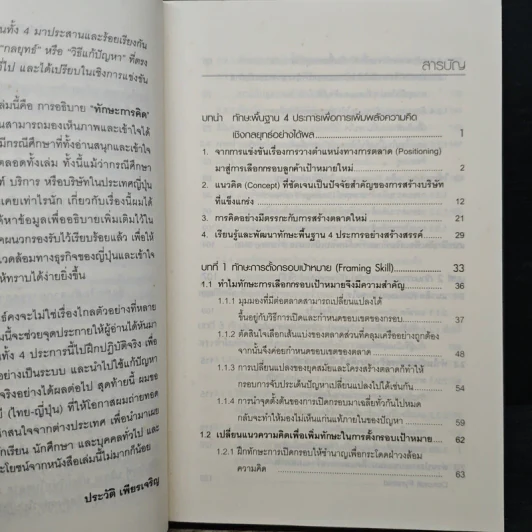 นทั้ง 4 มาประสานและร้อยเรียงกัน
"กลยุทธ์" หรือ "วิธีแก้ปัญหา" ที่ตรง
ไป และได้เปรียบในเชิงการแข่งขัน
ล่มนี้คือ การอธิบาย "ทักษะการคิด"
นสามารถมองเห็นภาพและเข้าใจได้
มีกรณีศึกษาที่ทั้งอ่านสนุกและเข้าใจ
ตลอดทั้งเล่ม ทั้งนี้แม้ว่ากรณีศึกษา
ฑ์ บริการ หรือบริษัทในประเทศญี่ปุ่น
คยเท่าไรนัก เกี่ยวกับเรื่องนี้ผมได้
ห้หาข้อมูลเพื่ออธิบายเพิ่มเติมไว้ใน
คผนวกรองรับไว้เรียบร้อยแล้ว เพื่อให้
วดล้อมทางธุรกิจของญี่ปุ่นและเข้าใจ
ห้ทราบได้ง่ายยิ่งขึ้น
อ์คงจะไม่ใช่เรื่องไกลตัวอย่างที่หลาย
มนี้จะช่วยจุดประกายให้ผู้อ่านได้หันมา
ทั้ง 4 ประการนี้ไปฝึกปฏิบัติจริง เพื่อ
อย่างเป็นระบบ และนำไปใช้แก้ปัญหา
จริงอย่างได้ผลต่อไป สุดท้ายนี้ ผมขอ
(ไทย-ญี่ปุ่น) ที่ให้โอกาสผมถ่ายทอด
น่าสนใจจากต่างประเทศ เพื่อนำมาเผย
กเรียน นักศึกษา และบุคคลทั่วไป และ
ะโยชน์จากหนังสือเล่มนี้ไม่มากก็น้อย
ประวัติ เพียรเจริญ
สารบัญ
บทนำ ทักษะพื้นฐาน 4 ประการเพื่อการเพิ่มพลังความคิด
เชิงกลยุทธ์อย่างได้ผล 1
1. จากการแข่งขันเรื่องการวางตำแหน่งทางการตลาด (Positioning)
มาสู่การเลือกกรอบลูกค้าเป้าหมายใหม่ 2
2. แนวคิด (Concept) ที่ชัดเจนเป็นปัจจัยสำคัญของการสร้างบริษัท
ที่แข็งแกร่ง 12
3. การคิดอย่างมีตรรกะกับการสร้างตลาดใหม่ 21
4. เรียนรู้และพัฒนาทักษะพื้นฐาน 4 ประการอย่างสร้างสรรค์ 29
บทที่ 1 ทักษะการตั้งกรอบเป้าหมาย (Framing Skill) 33
1.1 ทำไมทักษะการเลือกกรอบเป้าหมายจึงมีความสำคัญ 36
1.1.1 มุมมองที่มีต่อตลาดสามารถเปลี่ยนแปลงได้
ขึ้นอยู่กับวิธีการเปิดและกำหนดขอบเขตของกรอบ 37
1.1.2 ตัดสินใจเลือกเส้นแบ่งของตลาดส่วนที่คลุมเครืออย่างถูกต้อง
จากนั้นจึงค่อยกำหนดขอบเขตของตลาด 48
1.1.3 การเปลี่ยนแปลงของยุคสมัยและโครงสร้างตลาดก็ทำให้
กรอบการจับประเด็นปัญหาเปลี่ยนแปลงไปได้เช่นกัน 54
1.1.4 การนำจุดตั้งต้นของการเปิดกรอบมาเฉลี่ยทั่วกันไปหมด
กลับจะทำให้มองไม่เห็นแก่นแท้ภายในของปัญหา 59
1.2 เปลี่ยนแนวความคิดเพื่อเพิ่มทักษะในการตั้งกรอบเป้าหมาย 62
1.2.1 ฝึกทักษะการเปิดกรอบให้ชำนาญเพื่อกระโดดฝ่าวงล้อม
ความคิด 63